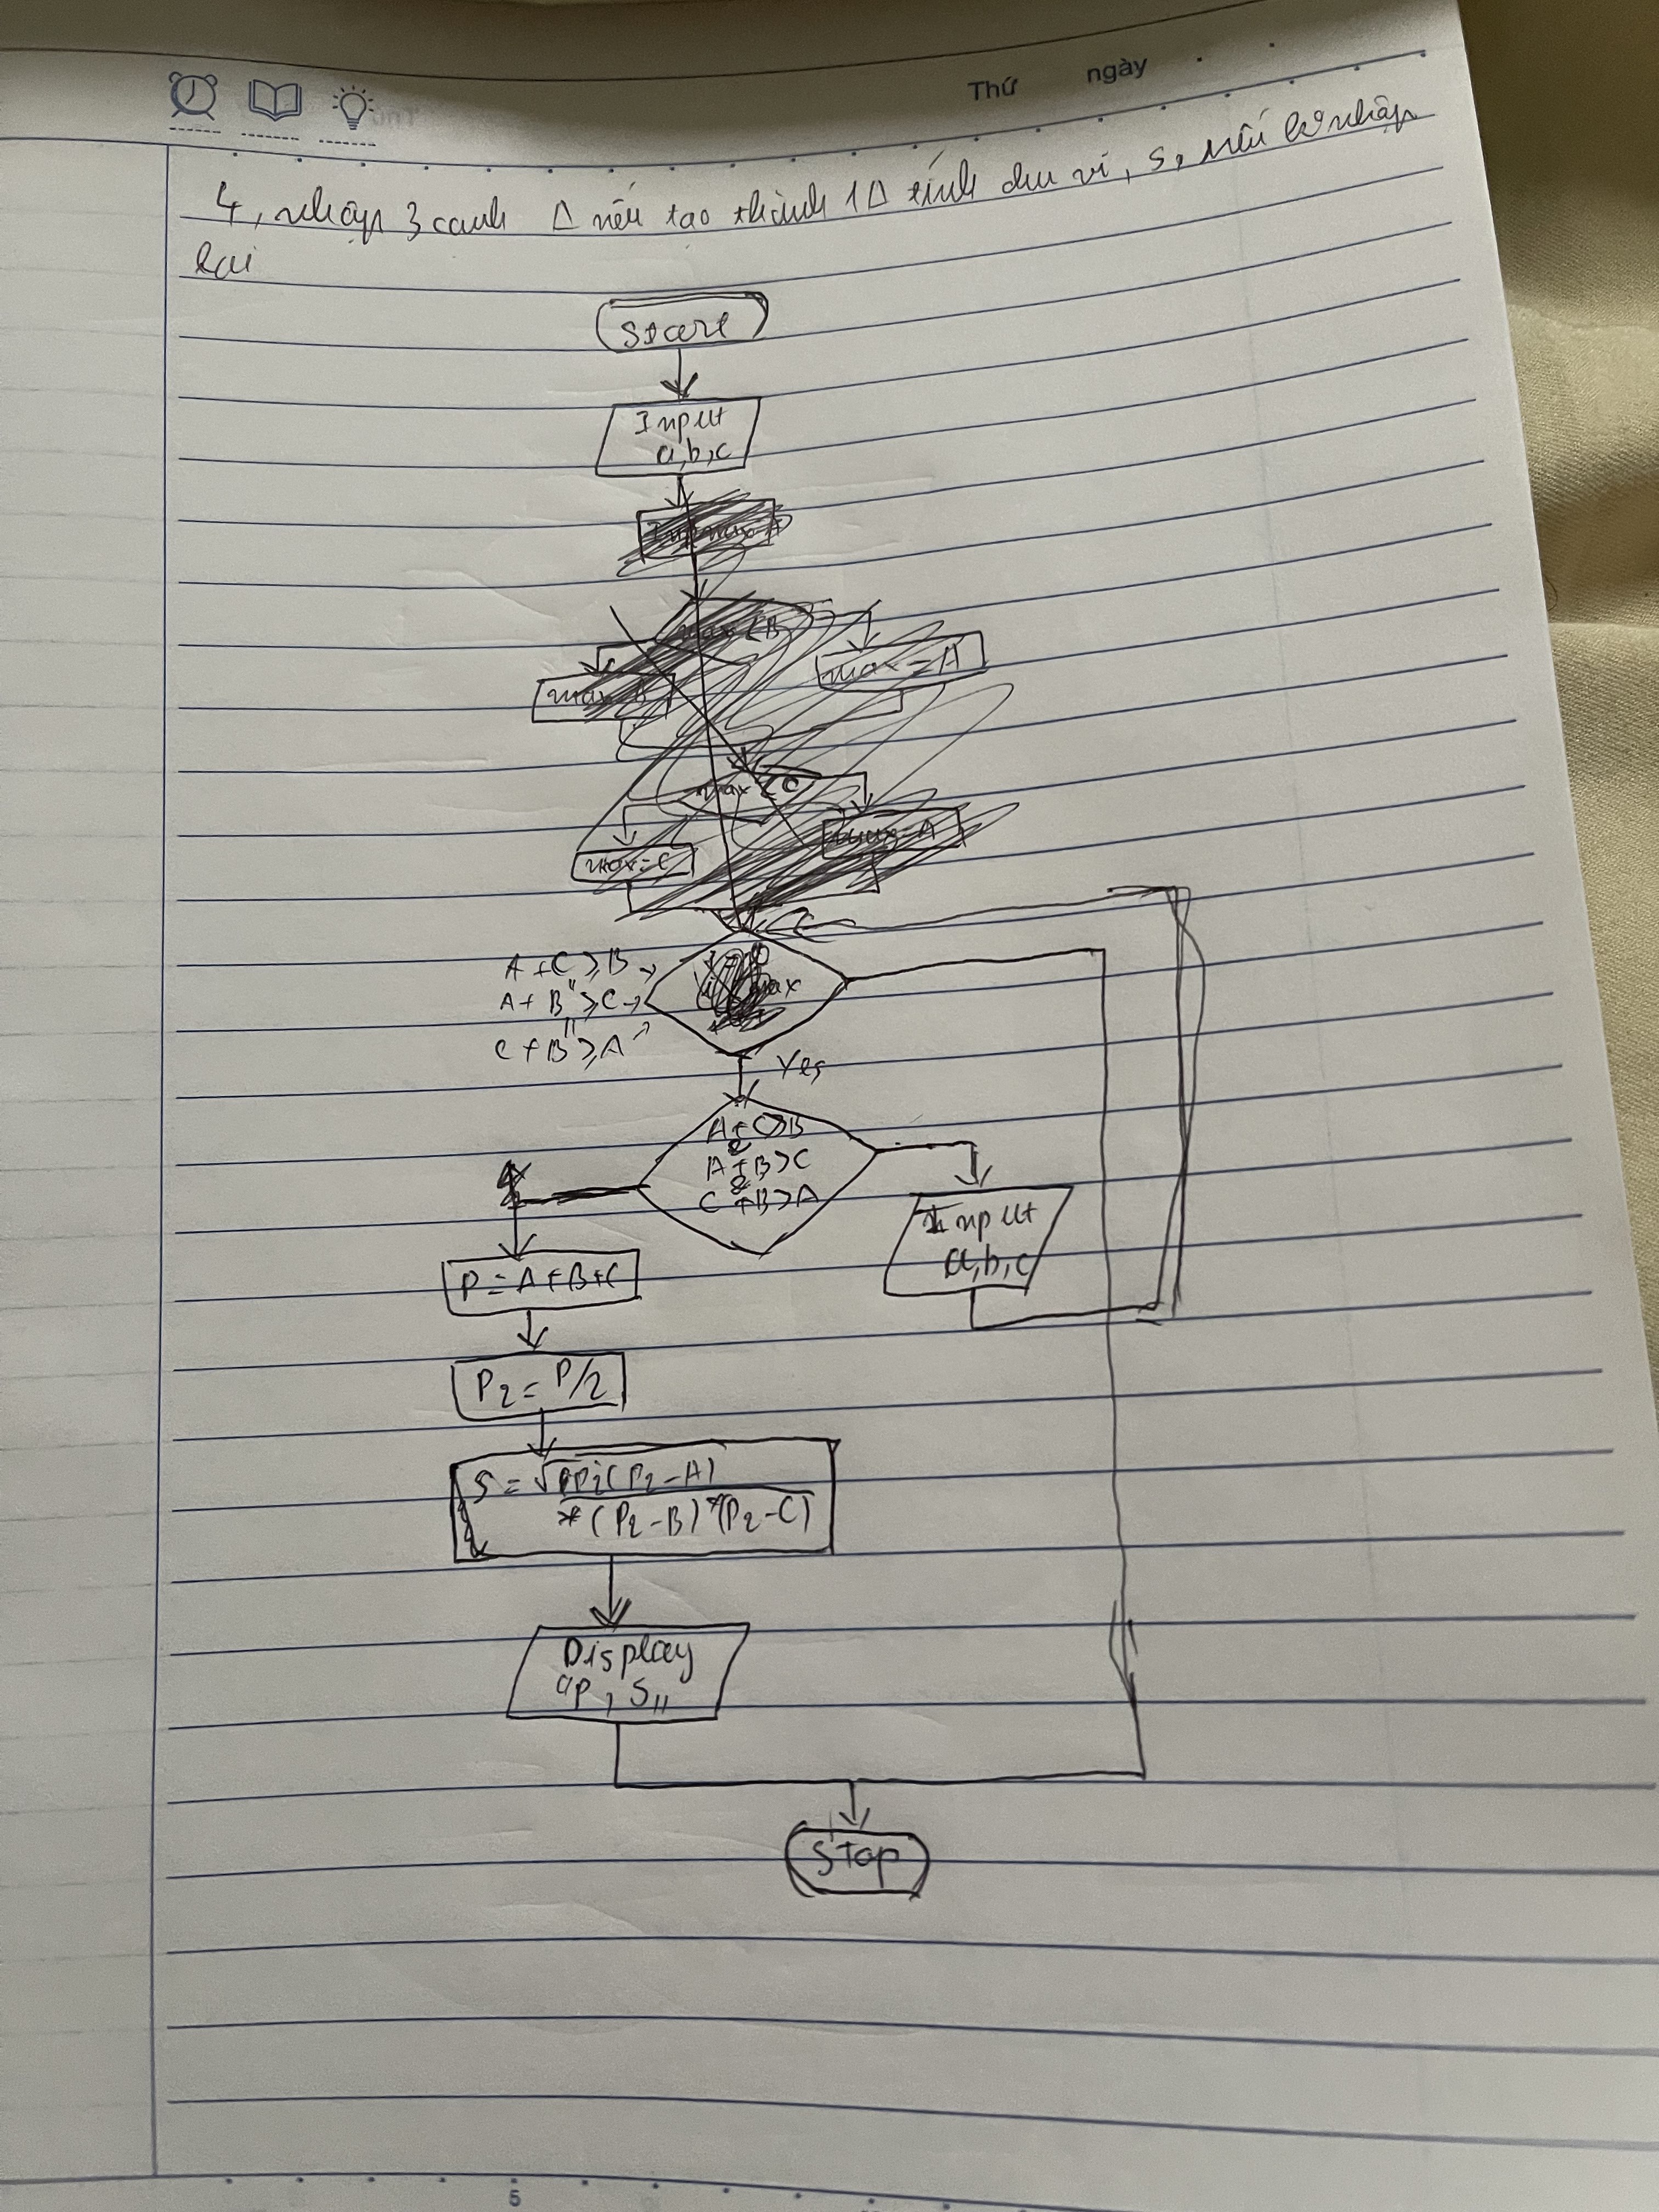 Thứ ngày
4, nhập 3 cạnh Δ nếu tạo thành 1Δ tính chu vi, S, nếu ko nhập
lại
Start
Input
a,b,c
max < B
max = B
max = A
max < C
max = A
max = C
A + C ≥ B
A + B ≥ C
C + B ≥ A
max
Yes
A + C > B
&
A + B > C
&
C + B > A
Input
a,b,c
P = A + B + C
P2 = P/2
(P2 - A)
* (P2 - B) * (P2 - C)
Display
p, S
Stop
5